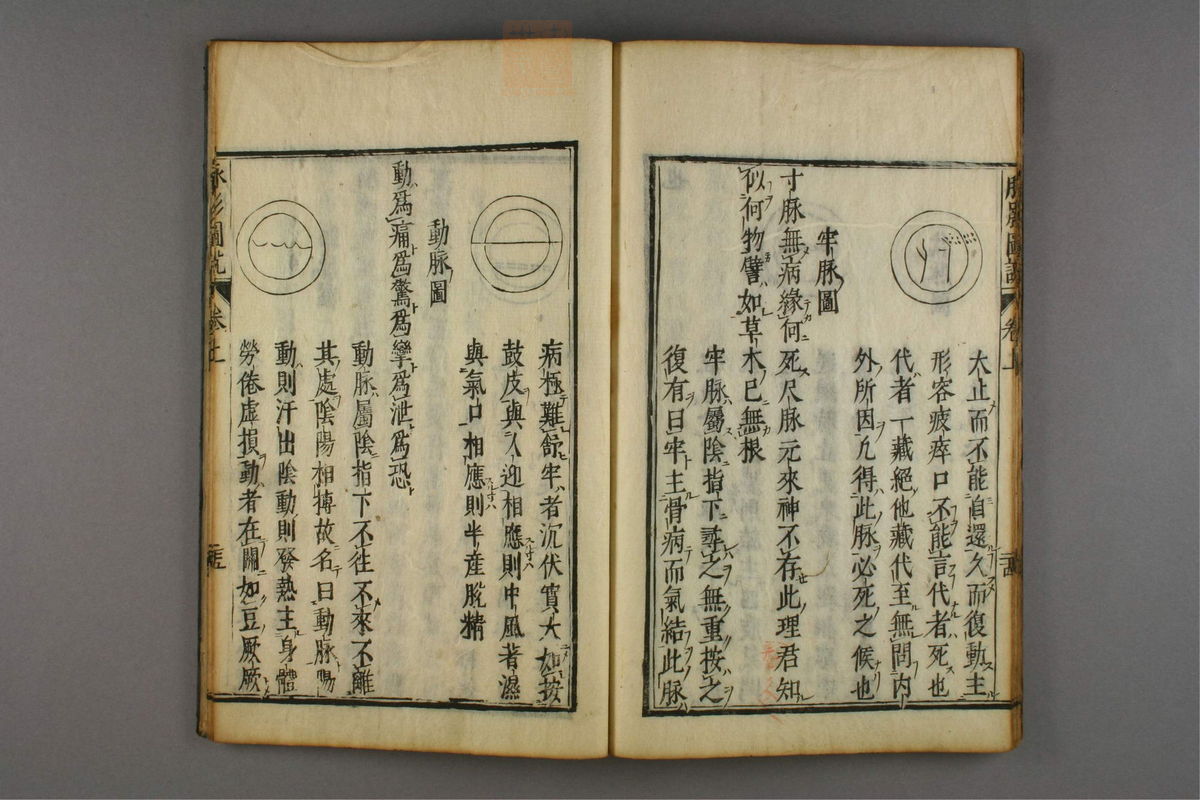 脉影圖説 卷上
太止而不能自還久而復動主
形容疲瘁口不能言代者死也
代者一藏絕他藏代至無問内
外所因凢得此脉必死之候也
牢脉圖
寸脉無病緣何死尺脉元來神不存此理君知
似何物譬如草木已無根
牢脉屬陰指下尋之無重按之
復有曰牢主骨病而氣結此脉
病極難舒牢者沉伏實大如按
鼓皮與人迎相應則中風著濕
與氣口相應則半産脫精
動脉圖
動爲痛爲驚爲攣爲泄爲恐
動脉屬陰指下不往不來不離
其處陰陽相摶故名曰動脉陽
動則汗出陰動則發熱主身體
勞倦虛損動者在關如豆厥厥
脉影圖説 卷上